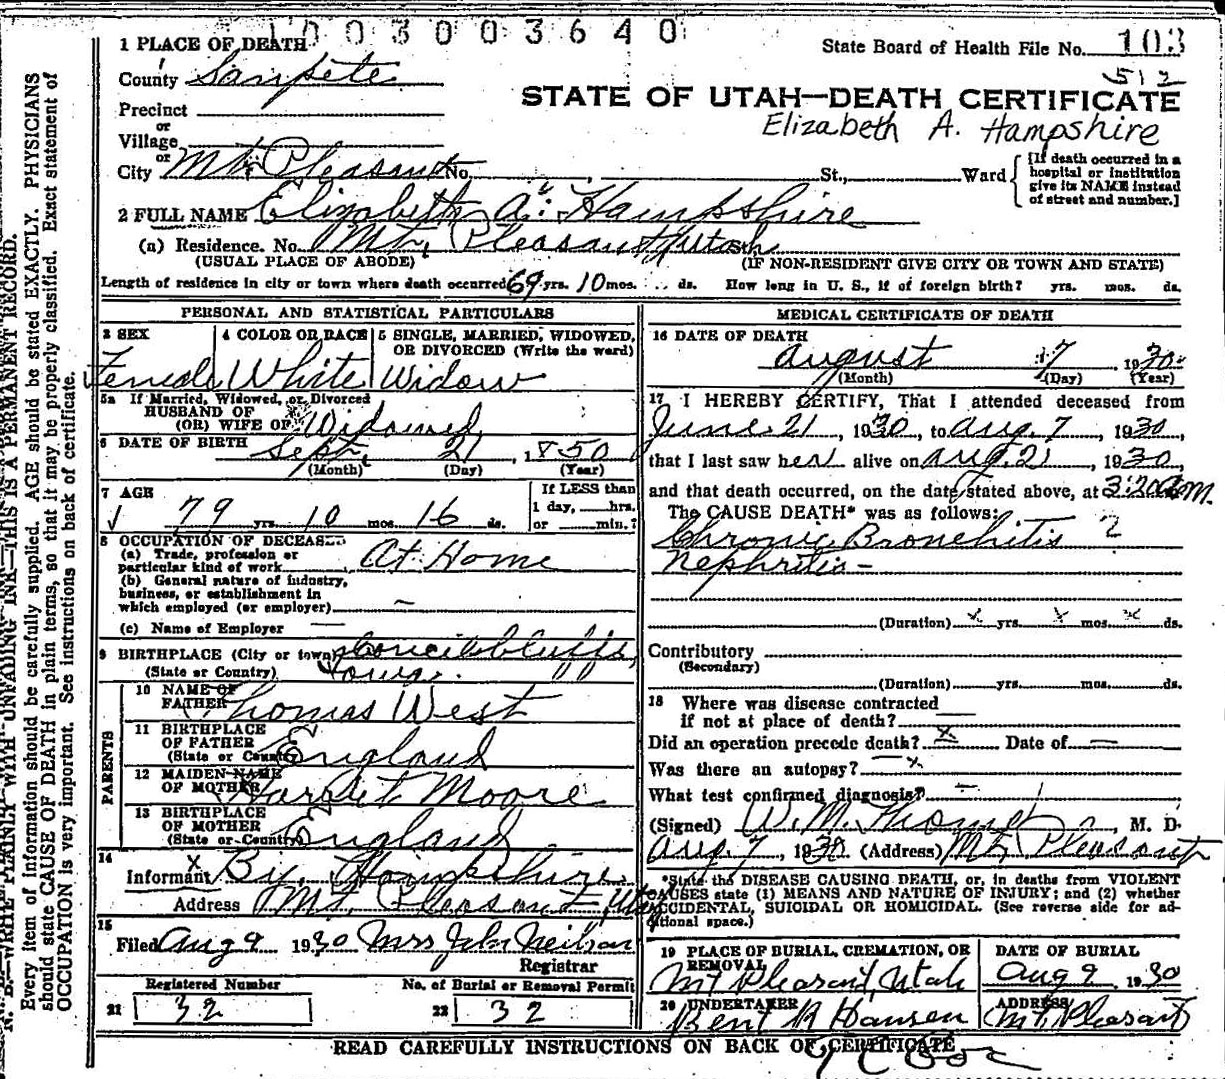 1003003640
1 PLACE OF DEATH
State Board of Health File No. 103
County Sanpete
512
STATE OF UTAH—DEATH CERTIFICATE
Precinct
or
Elizabeth A. Hampshire
Village
or
City Mt. Pleasant No. , St., Ward
[If death occurred in a
hospital or institution
give its NAME instead
of street and number.]
2 FULL NAME Elizabeth A. Hampshire
(a) Residence. No. Mt. Pleasant, Utah St.,
(USUAL PLACE OF ABODE) (IF NON-RESIDENT GIVE CITY OR TOWN AND STATE)
Length of residence in city or town where death occurred 69 yrs. 10 mos. ds. How long in U. S., if of foreign birth? yrs. mos. ds.
PERSONAL AND STATISTICAL PARTICULARS
3 SEX 4 COLOR OR RACE 5 SINGLE, MARRIED, WIDOWED,
OR DIVORCED (Write the word)
Female White Widow
5a If Married, Widowed, or Divorced
HUSBAND OF
(OR) WIFE OF Widowed
6 DATE OF BIRTH Sept. 21, 1850
(Month) (Day) (Year)
7 AGE If LESS than
1 day, hrs.
79 yrs. 10 mos. 16 ds. or min.?
8 OCCUPATION OF DECEASED
(a) Trade, profession or
particular kind of work At Home
(b) General nature of industry,
business, or establishment in
which employed (or employer) —
(c) Name of Employer —
9 BIRTHPLACE (City or town) Councilbluffs,
(State or Country) Iowa.
PARENTS
10 NAME OF
FATHER Thomas West
11 BIRTHPLACE
OF FATHER
(State or Country) England
12 MAIDEN NAME
OF MOTHER Harriet Moore
13 BIRTHPLACE
OF MOTHER
(State or Country) England
14 X
Informant By. Hampshire
Address Mt. Pleasant, Utah
15
Filed Aug 9 1930 Mrs John Neilson
Registrar
Registered Number No. of Burial or Removal Permit
21 32 22 32
MEDICAL CERTIFICATE OF DEATH
16 DATE OF DEATH
August 7, 1930
(Month) (Day) (Year)
17 I HEREBY CERTIFY, That I attended deceased from
June 21, 1930, to Aug. 7, 1930,
that I last saw her alive on Aug. 21, 1930,
and that death occurred, on the date stated above, at 3:20 a.m.
The CAUSE DEATH* was as follows:
Chronic Bronchitis 2
Nephritis—
(Duration) x yrs. x mos. x ds.
Contributory
(Secondary)
(Duration) yrs. mos. ds.
18 Where was disease contracted
if not at place of death? —
Did an operation precede death? x Date of —
Was there an autopsy? — x
What test confirmed diagnosis? —
(Signed) W. M. , M. D.
Aug 7, 1930. (Address) Mt. Pleasant
*State the DISEASE CAUSING DEATH, or, in deaths from VIOLENT
CAUSES state (1) MEANS AND NATURE OF INJURY; and (2) whether
ACCIDENTAL, SUICIDAL OR HOMICIDAL. (See reverse side for ad-
ditional space.)
19 PLACE OF BURIAL, CREMATION, OR
REMOVAL
Mt Pleasant, Utah
DATE OF BURIAL
Aug 9 1930
20 UNDERTAKER
Bent R Hansen
ADDRESS
Mt. Pleasant
READ CAREFULLY INSTRUCTIONS ON BACK OF CERTIFICATE
N. B.—WRITE PLAINLY WITH UNFADING INK—THIS IS A PERMANENT RECORD.
Every item of information should be carefully supplied. AGE should be stated EXACTLY. PHYSICIANS
should state CAUSE OF DEATH in plain terms, so that it may be properly classified. Exact statement of
OCCUPATION is very important. See instructions on back of certificate.